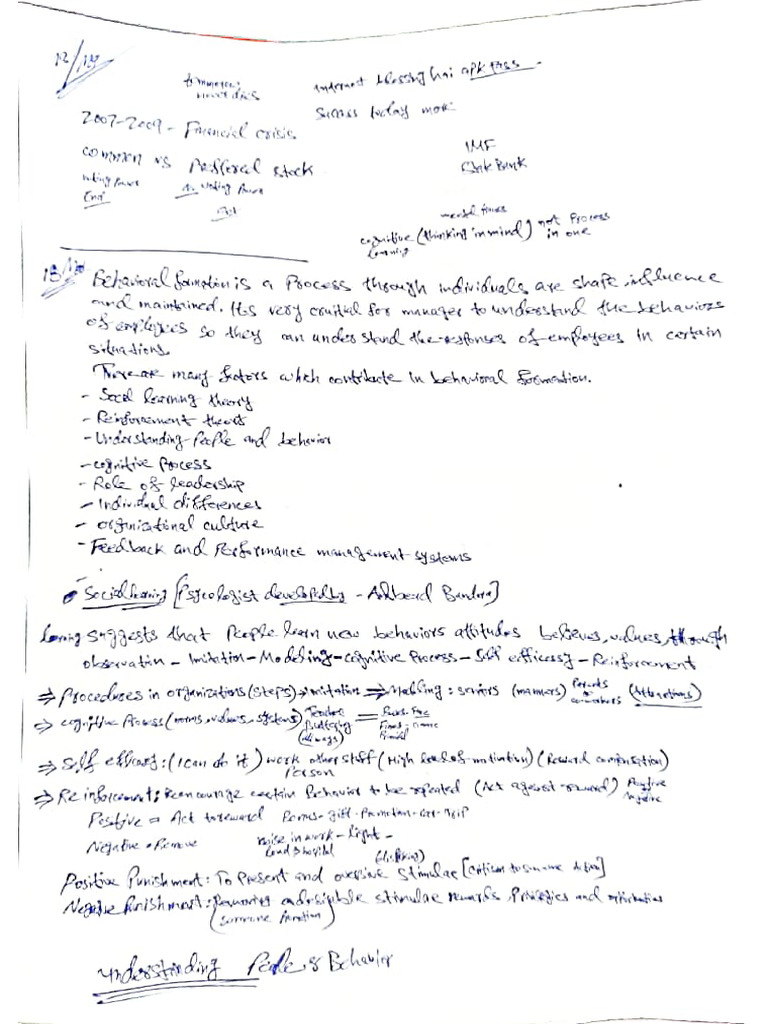 12/
Internet blessing hai apk
Success today more
2007-2009 - Financial crisis
IMF
common vs Preffered stock
State Bank
voting Power No Voting Power
mental
cognitive (thinking in mind) not Process
learning in one
13/
Behavioral formation is a Process through individuals are shape, influence
and maintained. It is very crutial for manager to understand the behaviors
of employees so they can understand the responses of employees in certain
situations.
There are many factors which contribute in behavioral formation.
- Socil learning theory
- Reinforcement theory
- Understanding People and behavior
- cognitive Process
- Role of leadership
- Individual differences
- organizational culture
- Feedback and Performance management systems
Social learning [Psycologist developed by - Bandura]
suggests that People learn new behaviors attitudes believes, values, through
observation - Imitation - Modeling - cognitive Process - Self efficesy - Reinforcement
⇒ Procedures in organizations (steps) imitation ⇒ Modeling : seniors (manners) Parents
⇒ cognitive Process (norms, values, systems)
⇒ Self efficasy : (I can do it) work other staff (High level of motivation) (Reward compensation)
Person
⇒ Reinforcement : encourage certain Behavior to be repeated (Act against reward) Positive
Negative
Positive = Act to reward Bonus - gift - Promotion - car - Trip
Negative = Remove noise in work - Light -
Positive Punishment : To Present and stimulae
Negative Punishment : Removing stimulae rewards, Privileges and
Understanding People & Behavior